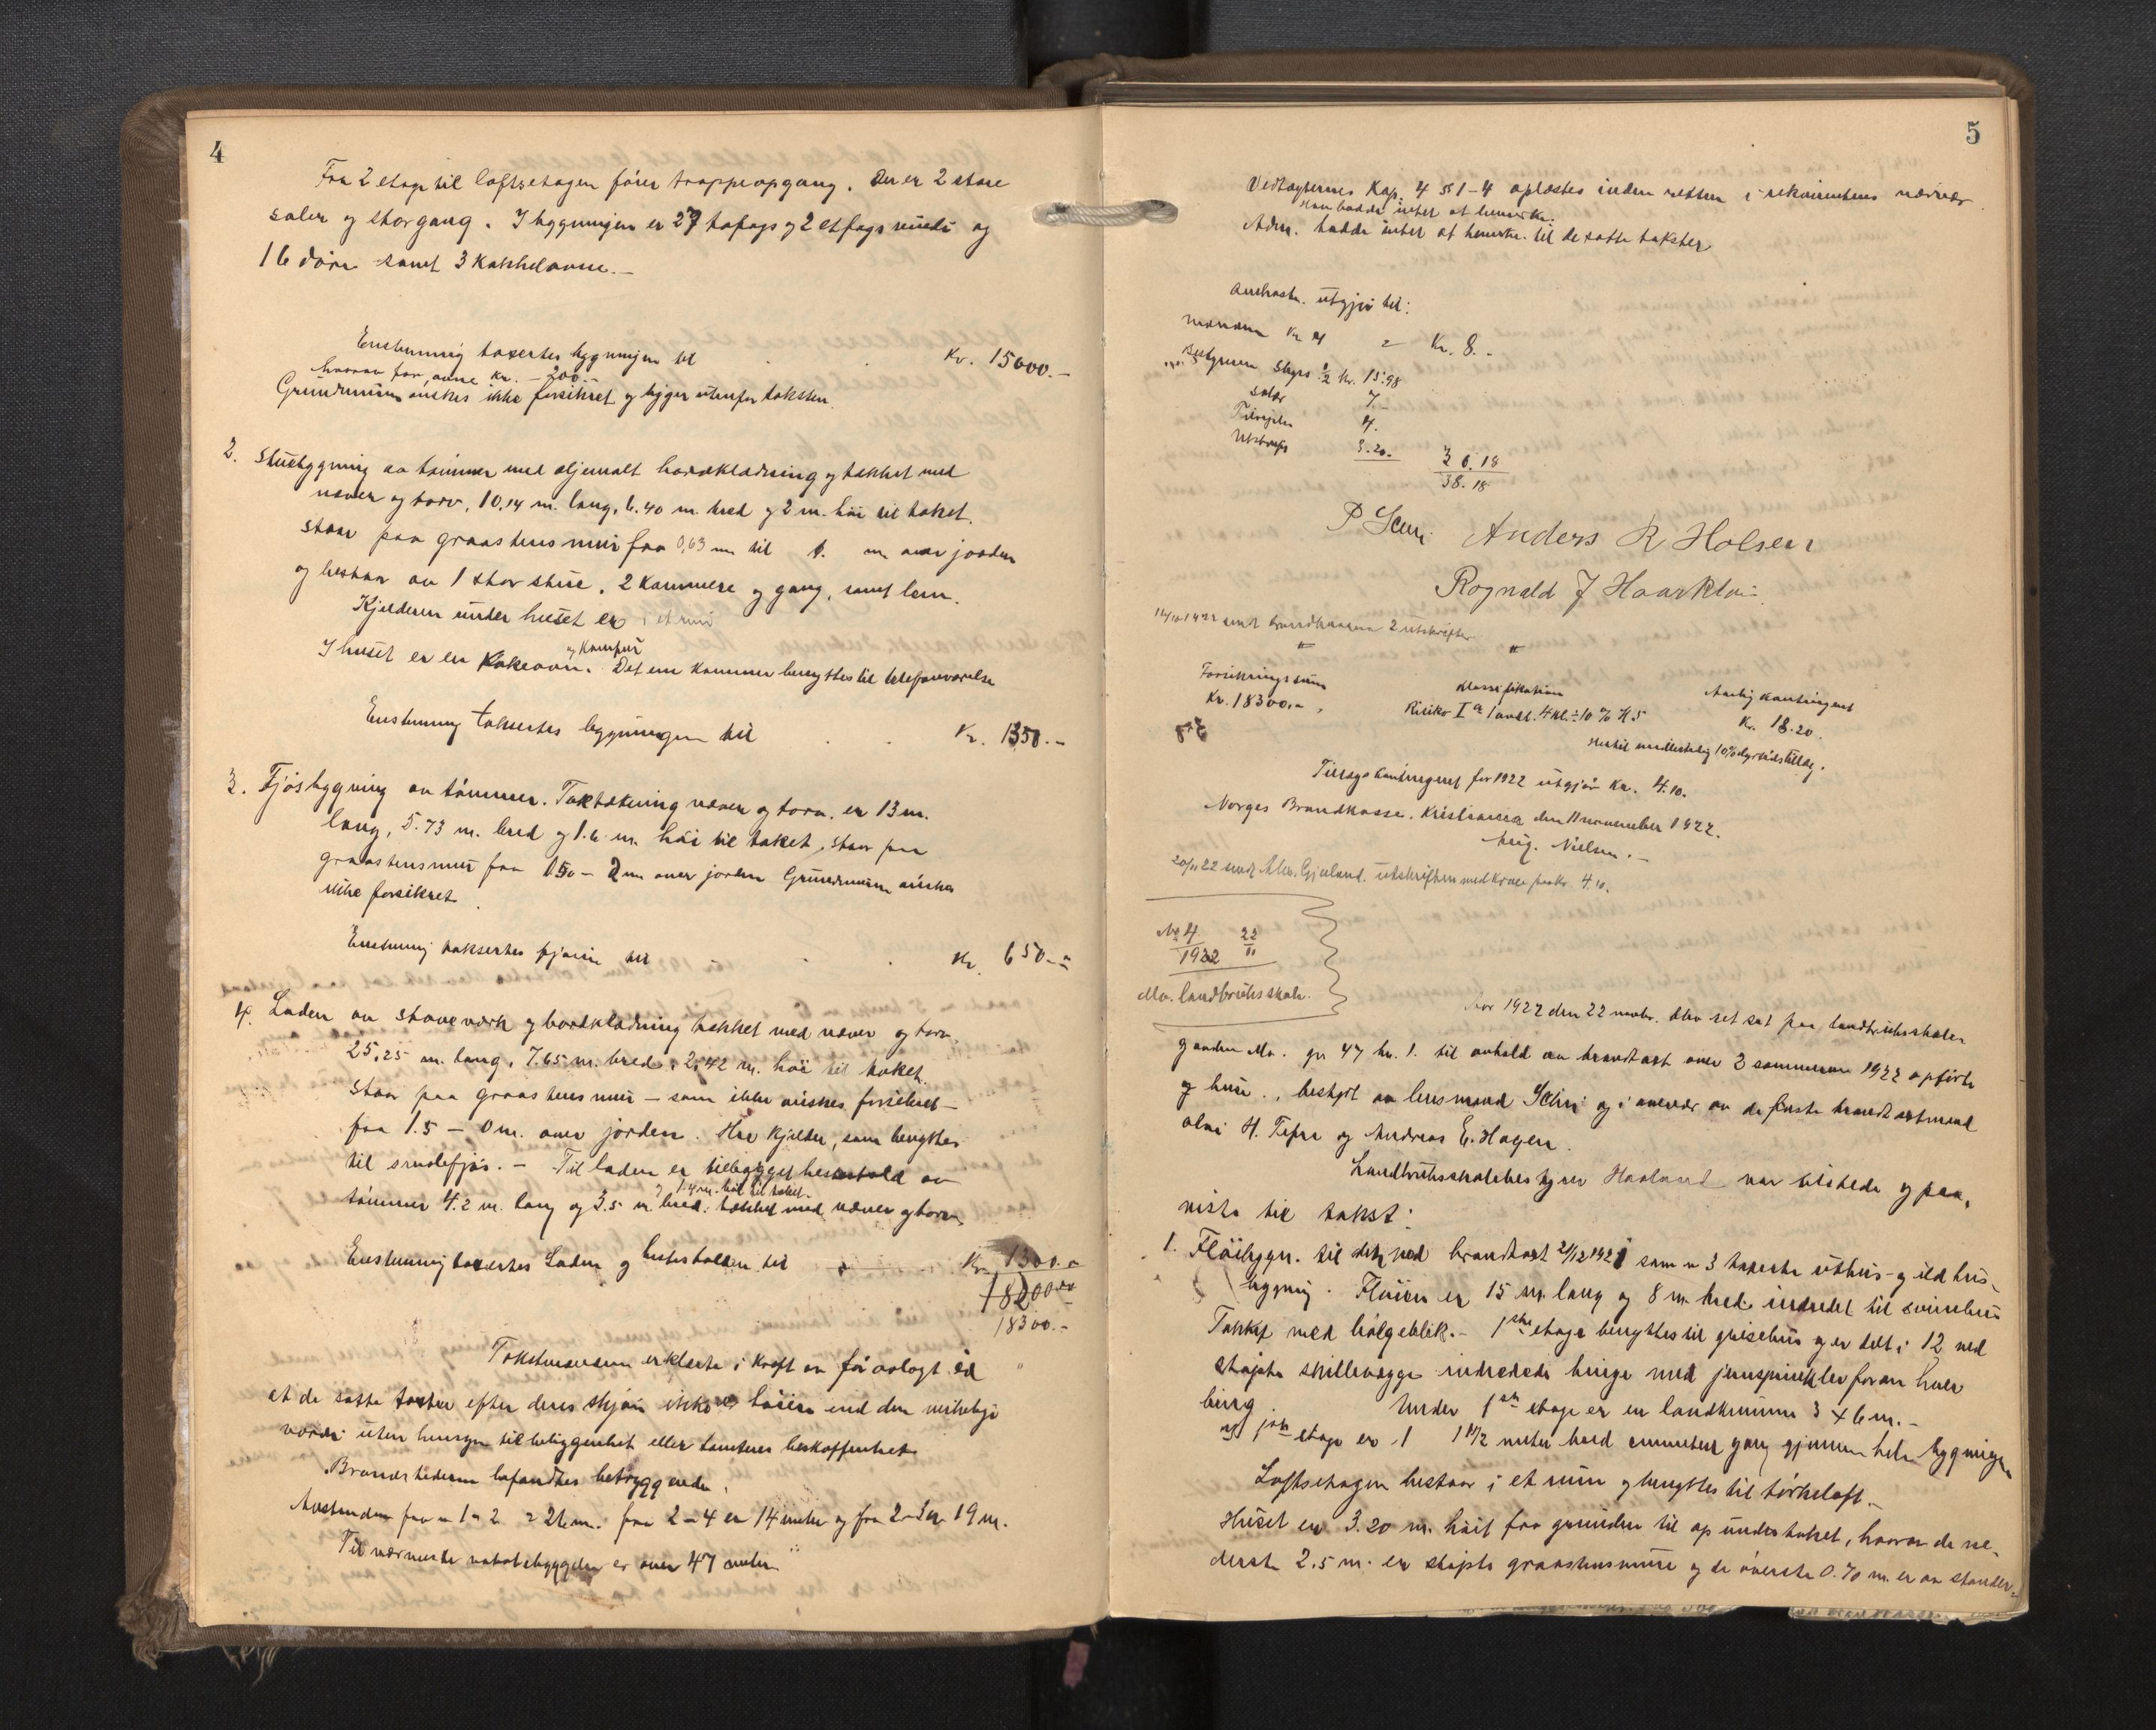 4
Fra 2 etage til loftsetagen fører trappeopgang. Der er 2 store
saler og storgang. I bygningen er 27 tofags og 2 etfags vindu og
16 døre samt 3 kakkelovne.-
Enstemmig taxertes bygningen til Kr. 15000.-
hvorav for ovne Kr. - 200.-
Grundmuren ønskes ikke forsikret og ligger utenfor taksten.
2. Stuebygning av tømmer med oljemalt bordklædning og tækket med
næver og torv, 10,14 m. lang, 6.40 m. bred og 2 m. høi til taket,
staar paa graastensmur fra 0,63 m til 1. m over jorden
og bestaar av 1 stor stue, 2 kammere og gang, samt lem.
Kjelderen under huset er i et rum
og komfur
I huset er en kokeovn. Det ene kammer benyttes til telefonværelse
Enstemmig taksertes bygningen til Kr. 1350.-
3. Fjøsbygning av tømmer. Taktækning næver og torv. er 13 m.
lang, 5.73 m. bred og 1.6 m. høi til taket, staar paa
graastensmur fra 0.50 - 2 m over jorden Grundmuren ønskes
ikke forsikret.
Enstemmig taksertes fjøsen til Kr. 650.-
4. Laden av staveverk og bordklædning tækket med næver og torv.
25,25 m. lang, 7.65 m. bred, 2,42 m. høi til taket.
Staar paa graastensmur - som ikke ønskes forsikret -
fra 1.5 - 0 m. over jorden. Har kjelder, som benyttes
til smalefjøs. - Til laden er tilbygget hestestald av
og 1.4 m. høi til taket.
tømmer 4.2 m. lang og 3.5 m. bred. tækket med næver og torv.
Enstemmig taxertes Laden og hestestalden til Kr. 1300.-
18200.00
18300.-
Takstmændene erklærte i kraft av før avlagt ed
at de satte takster efter deres skjøn ikke er høiere end den virkelige
værdi uten hensyn til beliggenhet eller tomtenes beskaffenhet.
Brandstederne befandtes betryggende.
Avstanden fra 1 - 2 = 21 m. fra 2 - 4 er 14 meter og fra 2 - 3 er 19 m.
Til nærmeste nabobebyggelse er over 47 meter
5
Vedtægternes Kap. 4 §§ 1-4 oplæstes inden retten i rekvirentens nærvær
Han hadde intet at bemerke.
Adm. hadde intet at bemerke til de satte takster
utgjør til:
mændene Kr. 4 = Kr. 8.-
Skyss ½ Kr. 15.98
Salær 7.-
4.
Utskrift 3.20. 30.18
38.18
P Scur. Anders R Holsen
Rognald J Haarklau.
14/10-1922 sendt brandkassen 2 utskrifter
" "
Forsikringssum Klassifikation Aarlig kontingent
Kr. 18300.-, Risiko Iª 1 avd. 4 kl. ÷ 10 % K 5 Kr. 18.20.
Hertil midlertidig 10% dyrtidstillæg.
Tillægskontingent for 1922 utgjør Kr. 4.10.
Norges Brandkasse. Kristiania den 11 november 1922.
Aug. Nielsen.-
20/11 22 sendt Gjeeland. utskriften med krav paa kr. 4.10.
No 4
1922 22/11
Mo. landbruksskole.
Aar 1922 den 22 novbr. blev ret sat paa landbruksskolen
gaarden Mo. gr 47 br. 1. til avhold av brandtakst over 3 sommeren 1922 opførte
g huse, bestyrt av lensmand Scur og i overvær av de faste brandtakstmænd
Olai H. Tefre og Andreas E. Hagen.
Landbruksskolebestyrer Haaland var tilstede og paa-
viste til takst:
1. Fløibygn. til den ved brandtakst 21/12 1921 som no 3 taxerte uthus- og ildhus-
bygning. Fløien er 15 m lang og 8 m bred. indredet til svinehus
Tækket med bølgeblik.- 1ste etage benyttes til grisehus og er delt i 12 ved
støpte skillevægge indredede binger med jernsprinkler foran hver
bing. Under 1ste etage er en landkumme 3 x 6 m.-
I 1ste etage er 1 1½ meter bred cementert gang gjennem hele bygningen
Loftsetagen bestaar i et rum og benyttes til tørkeloft.-
Huset er 3.20 m. høit fra grunden til op under taket, hvorav de ne-
derste 2.5 m. er støpte graastensmure og de øverste 0.70 m. er av stender-